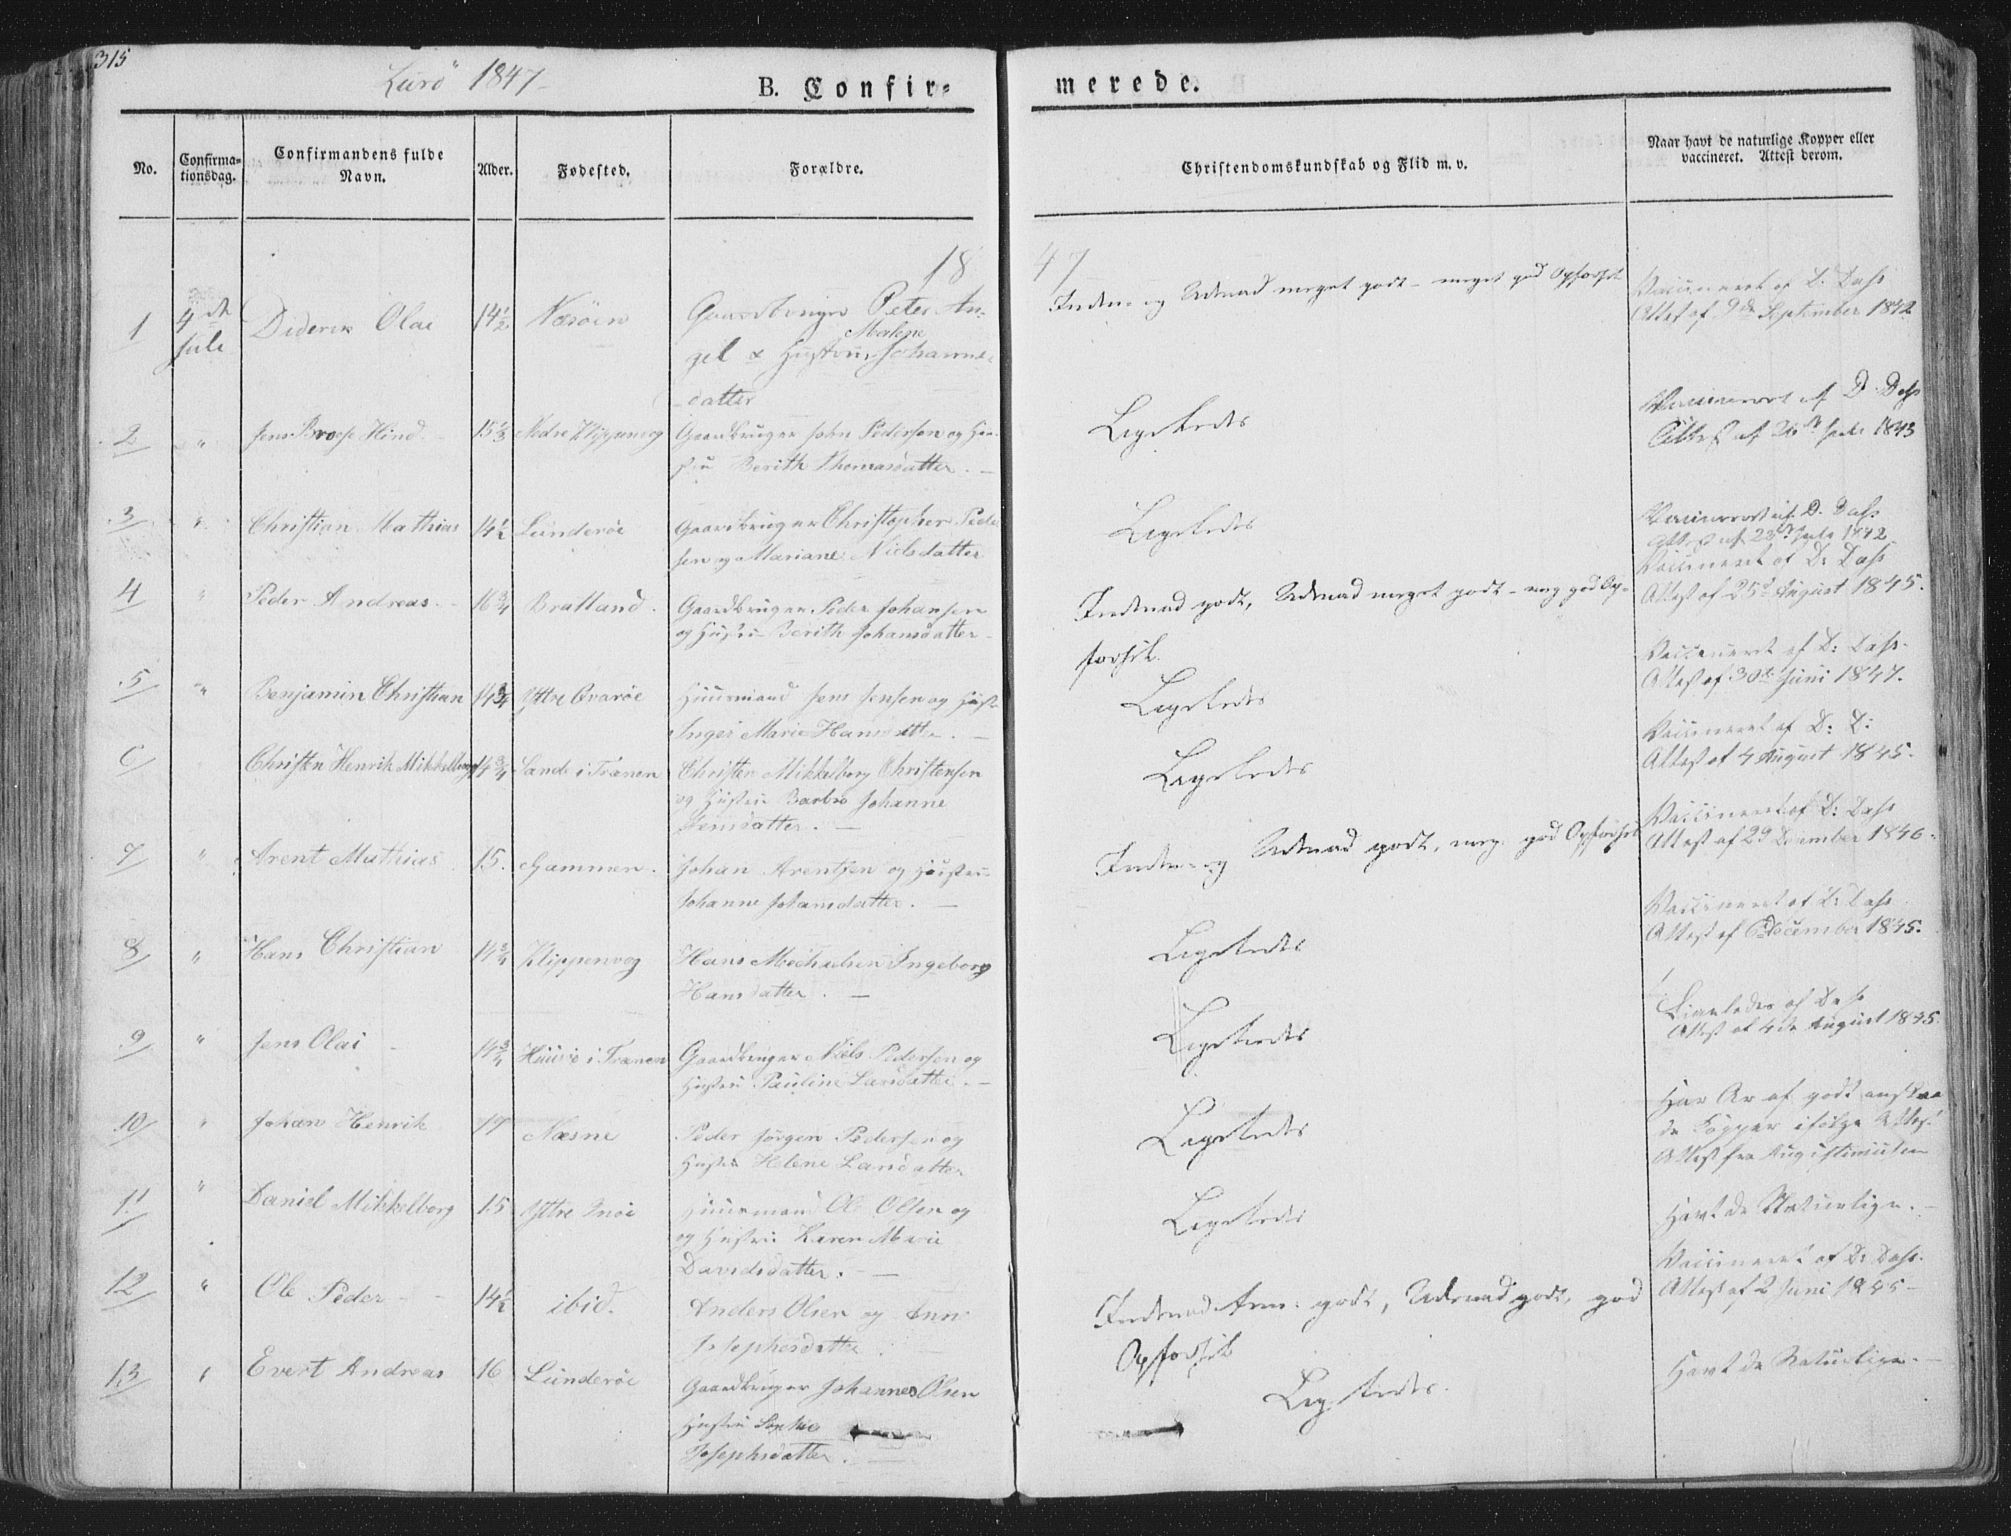 315
Lurö 1847
B. Confir-
merede.
No.
Confirma-
tionsdag.
Confirmandens fulde
Navn.
Alder.
Fødested.
Forældre.
Christendomskundskab og Flid m. v.
Naar havt de naturlige Kopper eller
vaccineret. Attest derom.
18
47
1
4de
Juli
Diderik Olai
14 1/2
Næsöen
Gaardbruger Peter An-
gel & Hustru Malene Johannes-
datter
Inden- og Udenad meget godt - meget god Opførsel
Vaccineret af D. Dass
Attest af 9de September 1842
2
"
Jens Hind
15 1/2
Nedre Klippenvog
Gaardbruger John Pedersen og Hu-
stru Berith Thomasdatter. -
Ligeledes
Vaccineret af D. Dass
Attest af Juli 1843
3
"
Christian Mathias
14 1/2
Lunderöe
Gaardbruger Christopher Peder
sen og Mariane Nielsdatter
Ligeledes
Vaccineret af D. Dass
Attest af 28de Juli 1842
4
"
Peder Andreas. -
16 3/4
Bratland.
Gaardbruger Peder Johansen
og Hustru Berith Johansdatter -
Indenad godt, Udenad meget godt - meg god Op-
førsel.
Vaccineret af D: Dass
Attest af 25d August 1845.
5
"
Benjamin Christian
14 3/4
Yttre Qvaröe
Huusmand Jens Jensen og Hust
Inger Marie Hansdatter. -
Ligeledes
Vaccineret af D: Dass.
Attest af 30te Juni 1847.
6
Christen Henrik Mikkelborg
14 3/4
Sande i Trænen
Christen Mikkelborg Christensen
og Hustru Barbro Johanne
Jensdatter. -
Ligeledes
Vaccineret af D: D:
Attest af 4 August 1845.
7
"
Arent Mathias
15.
Gammen.
Johan Arentsen og Hustru
Johanne Johansdatter. -
Inden- og Udenad godt, meg. god Opførsel
Vaccineret af D: Dass
Attest af 29 December 1846.
8
"
Hans Christian
14 3/4
Klippenvog
Hans Michelsen Ingeborg
Hansdatter. -
Ligeledes
Vaccineret af D: Dass.
Attest af December 1845.
9
"
Jens Olai -
14 3/4
Huusö i Trænen
Gaardbruger Niels Pedersen og
Hustru Pauline Larsdatter. -
Ligeledes
Ligeledes af Dass
Attest af 4de August 1845.
10
"
Johan Henrik
19
Næsne
Peder Jörgen Pedersen og
Hustru Helene Larsdatter
Ligeledes
Har Ar af godt
de Kopper ifölge
Attest fra
11
"
Daniel Mikkelborg
15
Yttre
Huusmand Ole Olsen og
og Hustru Karen Marie
Davidsdatter. -
Ligeledes
Havt de Naturlige. -
12
"
Ole Peder - -
14 1/2
ibid.
Anders Olsen og Ann
Josephsdatter. -
Indenad godt, Udenad godt, god
Opførsel
Vaccineret af D: Dass.
Attest af 2 Juni 1845 -
13
"
Evert Andreas
16
Lunderöe
Gaardbruger Johannes Olsen
Hustru Sophie
Josephsdatter. -
Ligeledes.
Havt de Naturlige. -